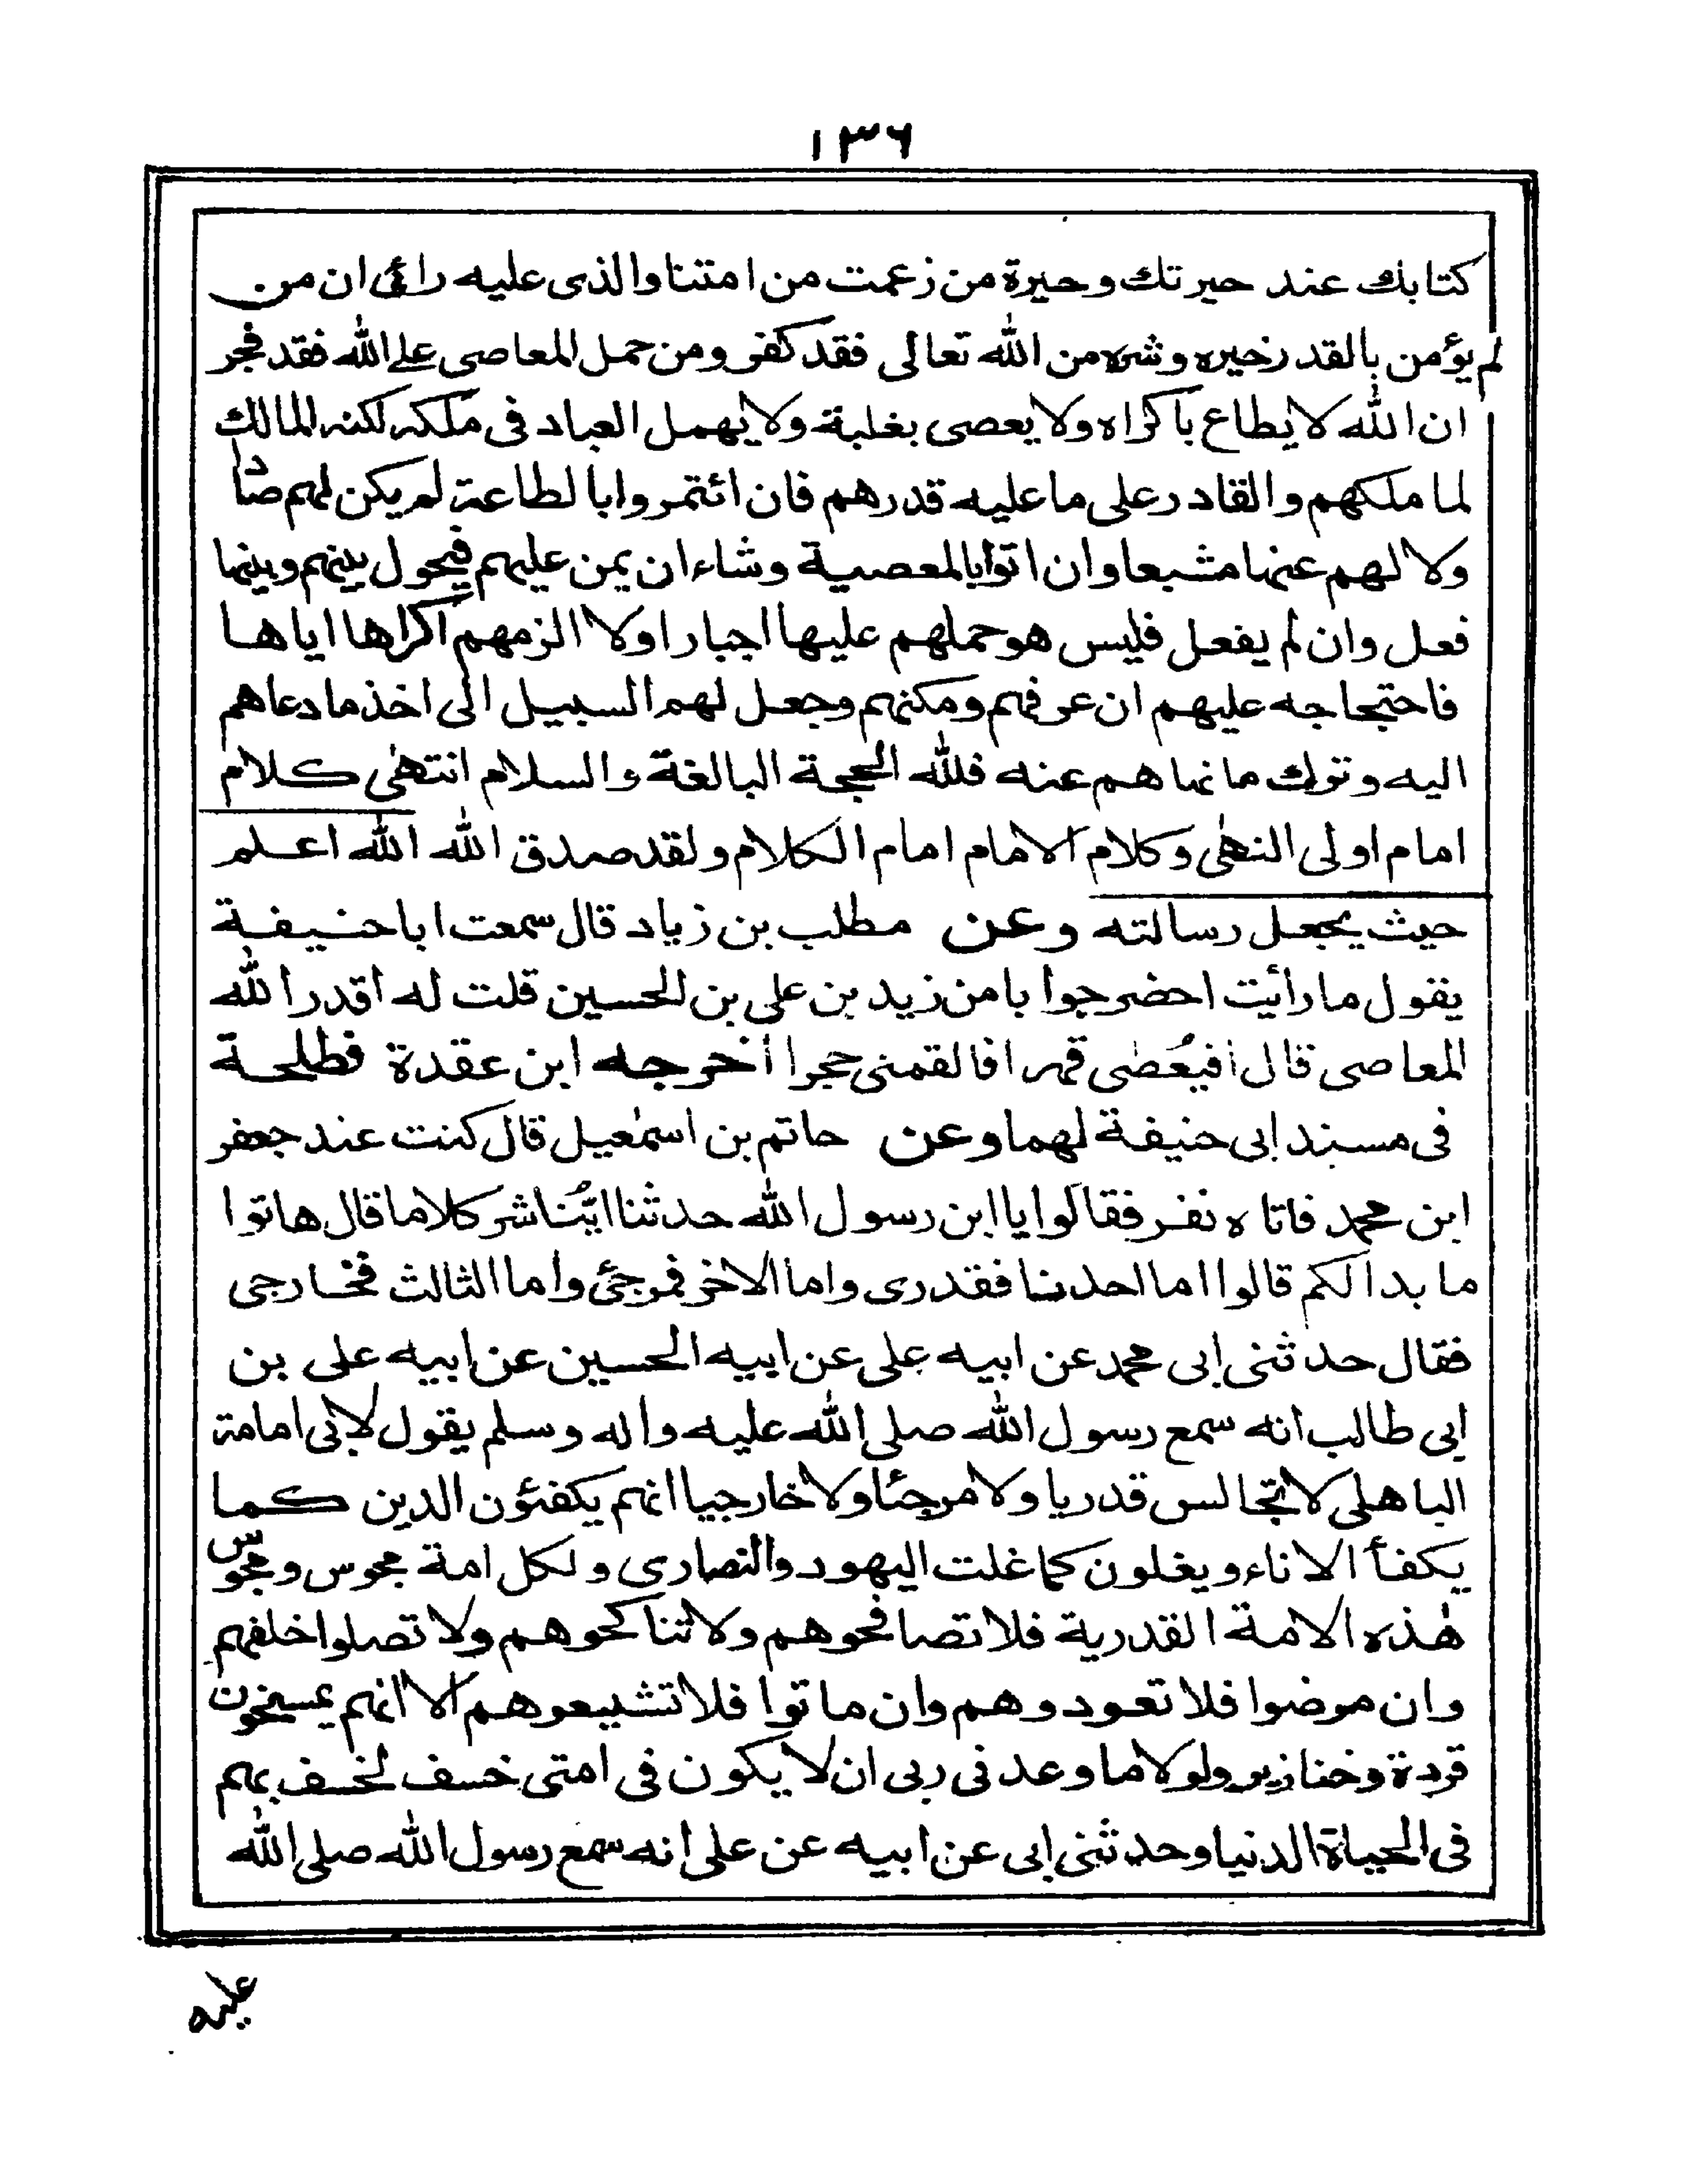 ١٣٦
كتابك عند حيرتك وحيرة من زعمت من امتنا والذى عليه رائى ان من
لم يؤمن بالقدر خيره وشره من الله تعالى فقد كفر ومن حمل المعاصى على الله فقد فجر
ان الله لا يطاع باكراه ولا يعصى بغلبة ولا يهمل العباد فى ملكه لكنه المالك
لما ملكهم والقادر على ما عليه قدرهم فان ائتمروا بالطاعة لم يكن لهم صادا
ولا لهم عنها مشبعا وان اتوا بالمعصية وشاء ان يمن عليهم فيحول بينهم وبينها
فعل وان لم يفعل فليس هو حملهم عليها اجبارا ولا الزمهم اكراها اياها
فاحتجاجه عليهم ان عرفهم ومكنهم وجعل لهم السبيل الى اخذ ما دعاهم
اليه وترك ما نهاهم عنه فلله الحجة البالغة والسلام انتهى كلام
امام اولى النهى وكلام الامام امام الكلام ولقد صدق الله الله اعلم
حيث يجعل رسالته وعن مطلب بن زياد قال سمعت ابا حنيفة
يقول ما رأيت احضر جوابا من زيد بن على بن الحسين قلت له اقدر الله
المعاصى قال أفيُعْصٰى قهرا فالقمنى حجرا أخرجه ابن عقدة فطلحة
فى مسند ابى حنيفة لهما وعن حاتم بن اسمٰعيل قال كنت عند جعفر
ابن محمد فاتاه نفر فقالوا يا ابن رسول الله حدثنا ايُّنا شر كلاما قال هاتوا
ما بدا لكم قالوا اما احدنا فقدرى واما الاخر فمرجئ واما الثالث فخارجى
فقال حدثنى ابى محمد عن ابيه على عن ابيه الحسين عن ابيه على بن
ابى طالب انه سمع رسول الله صلى الله عليه واله وسلم يقول لابى امامة
الباهلى لا تجالس قدريا ولا مرجئا ولا خارجيا انهم يكفئون الدين كما
يكفأ الاناء ويغلون كما غلت اليهود والنصارى ولكل امة مجوس ومجوس
هٰذه الامة القدرية فلا تصافحوهم ولا تناكحوهم ولا تصلوا خلفهم
وان مرضوا فلا تعودوهم وان ماتوا فلا تشيعوهم الا انهم يمسخون
قردة وخنازير ولولا ما وعدنى ربى ان لا يكون فى امتى خسف لخسف بهم
فى الحياة الدنيا وحدثنى ابى عن ابيه عن على انه سمع رسول الله صلى الله
عليه